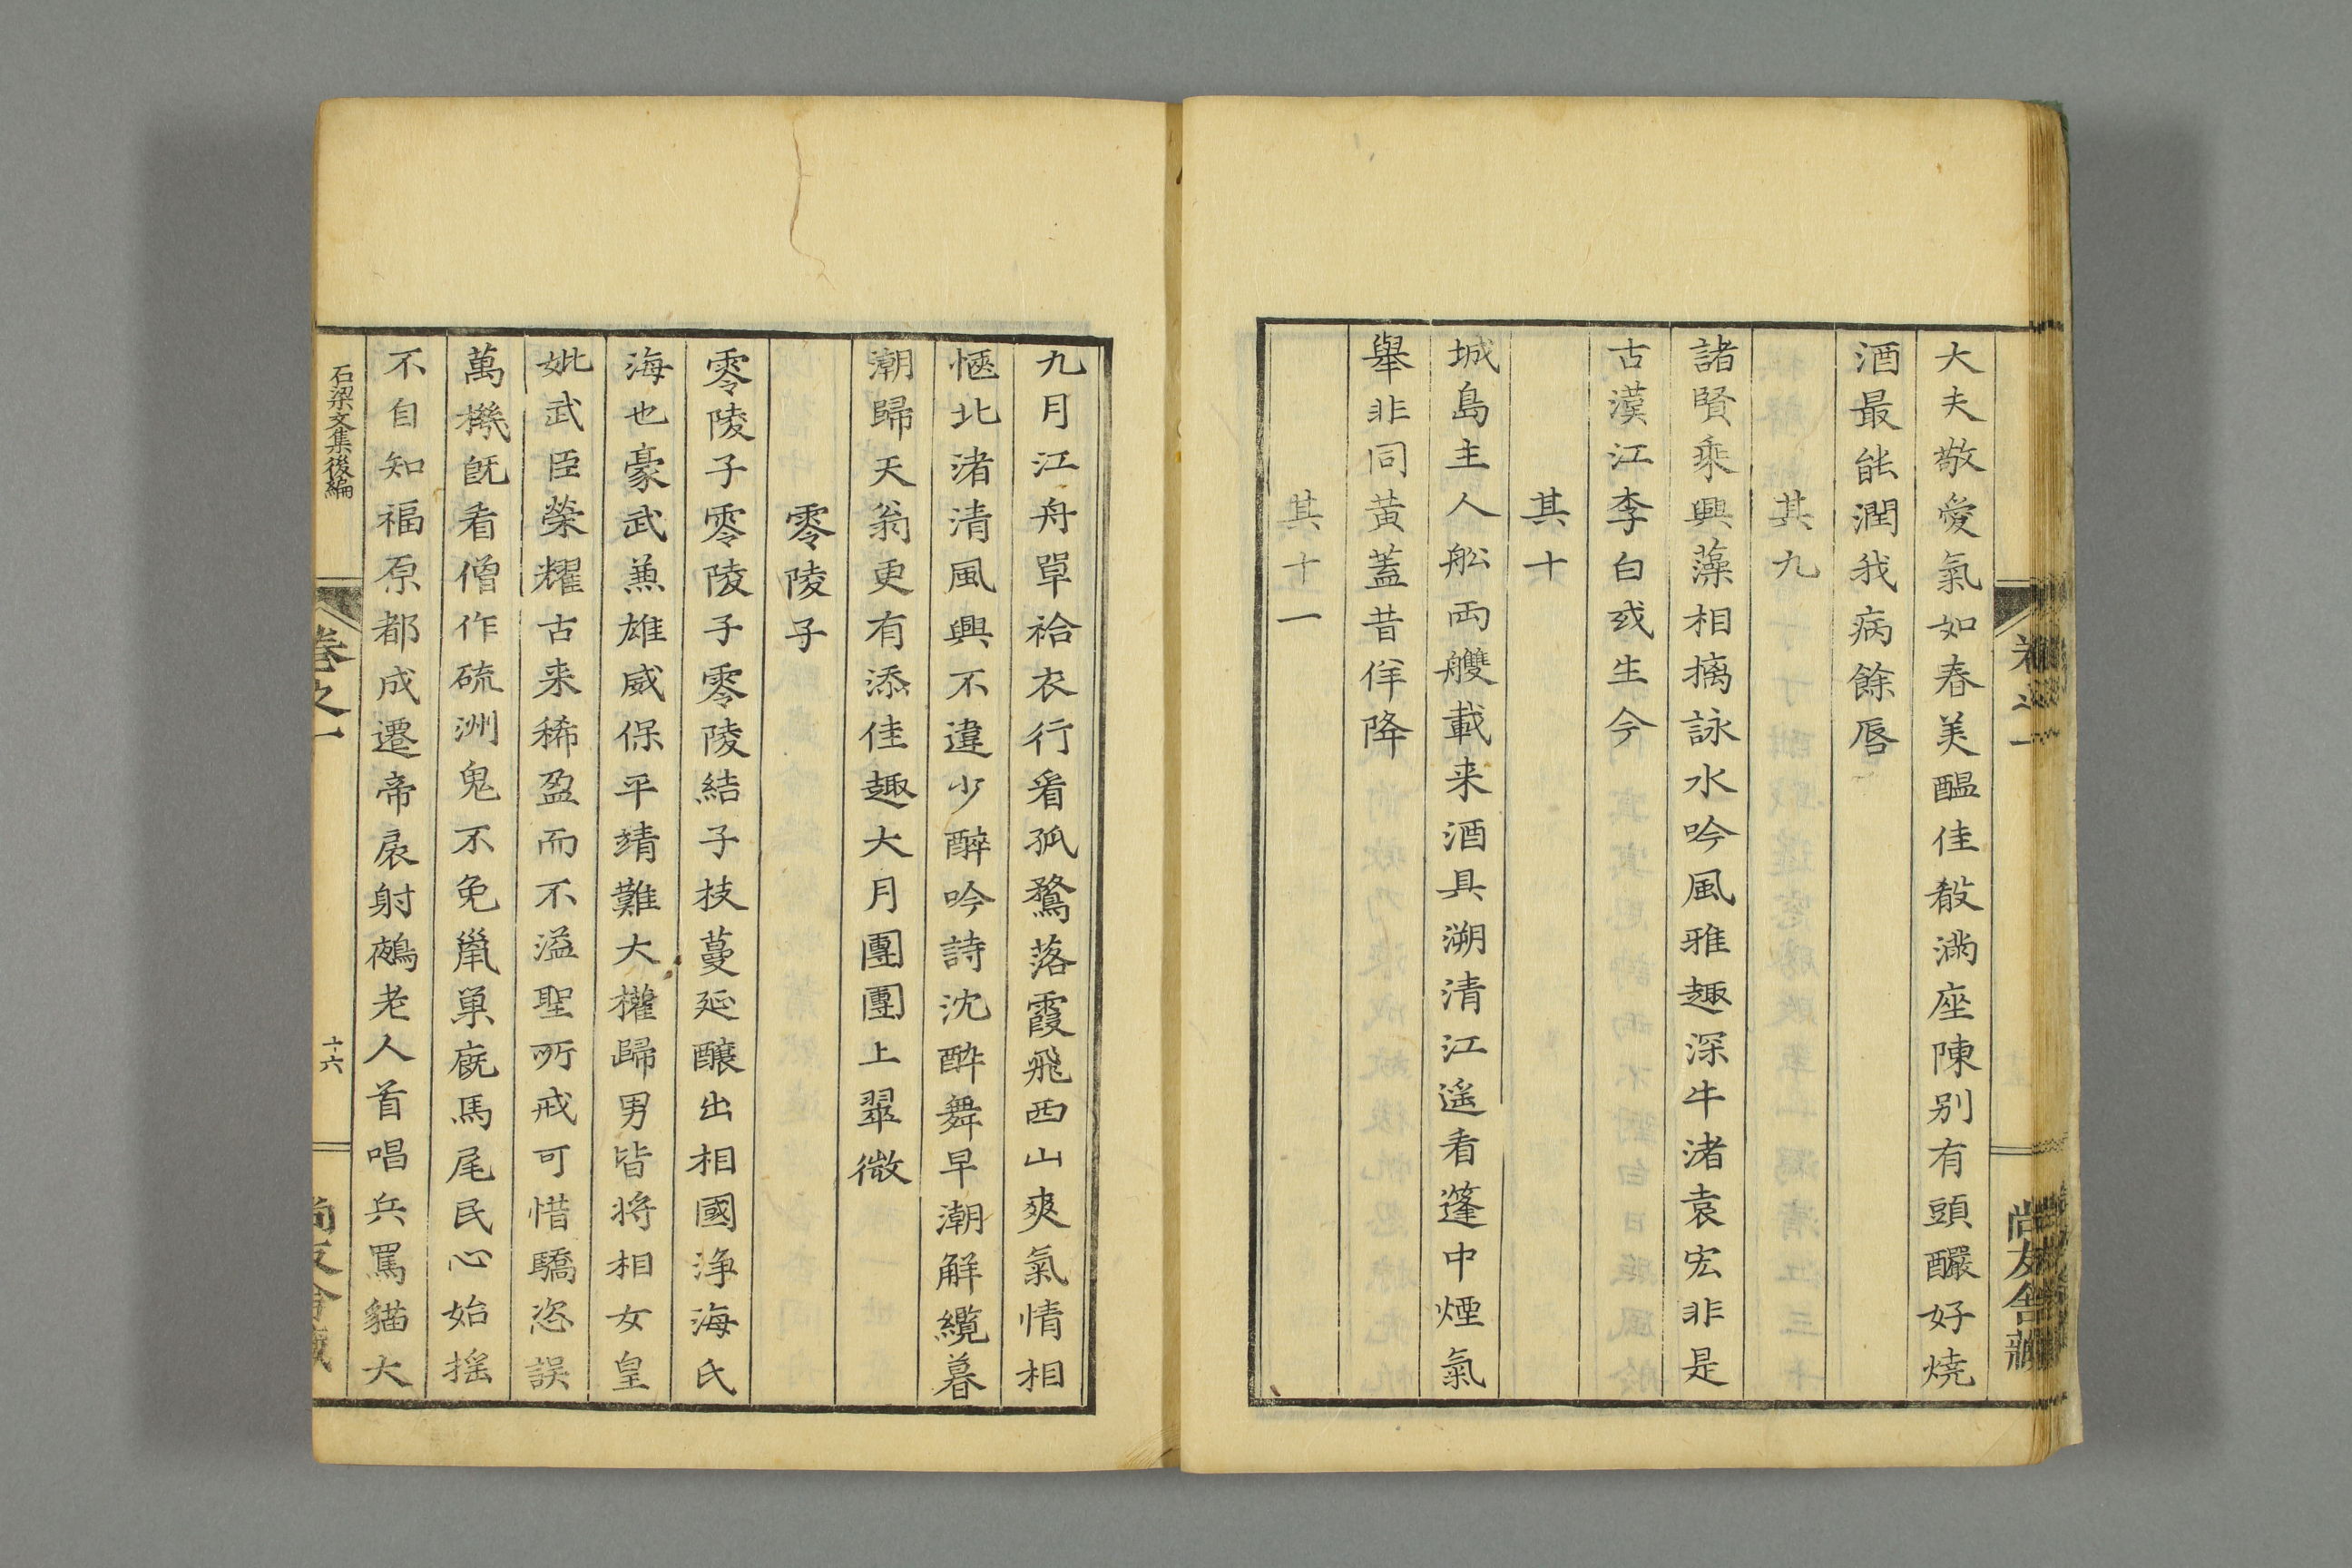 大夫敬愛氣如春美醞佳殽滿座陳别有頭釅好燒
酒最能潤我病餘唇
其九
諸賢乘興藻相摛詠水吟風雅趣深牛渚袁宏非是
古漢江李白或生今
其十
城島主人舩両艭載来酒具溯清江遥看蓬中煙氣
舉非同黄蓋昔佯降
其十一
九月江舟單袷衣行看孤鶩落霞飛西山爽氣情相
愜北渚清風興不違少醉吟詩沈酔舞早潮解纜暮
潮歸天翁更有添佳趣大月團團上翠微
零陵子
零陵子零陵子零陵結子枝蔓延釀出相國浄海氏
海也豪武兼雄威保平靖難大權歸男皆将相女皇
妣武臣榮耀古来稀盈而不溢聖所戒可惜驕恣誤
萬機既看僧作硫洲鬼不免鼠巣廐馬尾民心始揺
不自知福原都成遷帝扆射鵺老人首唱兵罵貓大
石梁文集後編
卷之一
十六
尚友舍藏